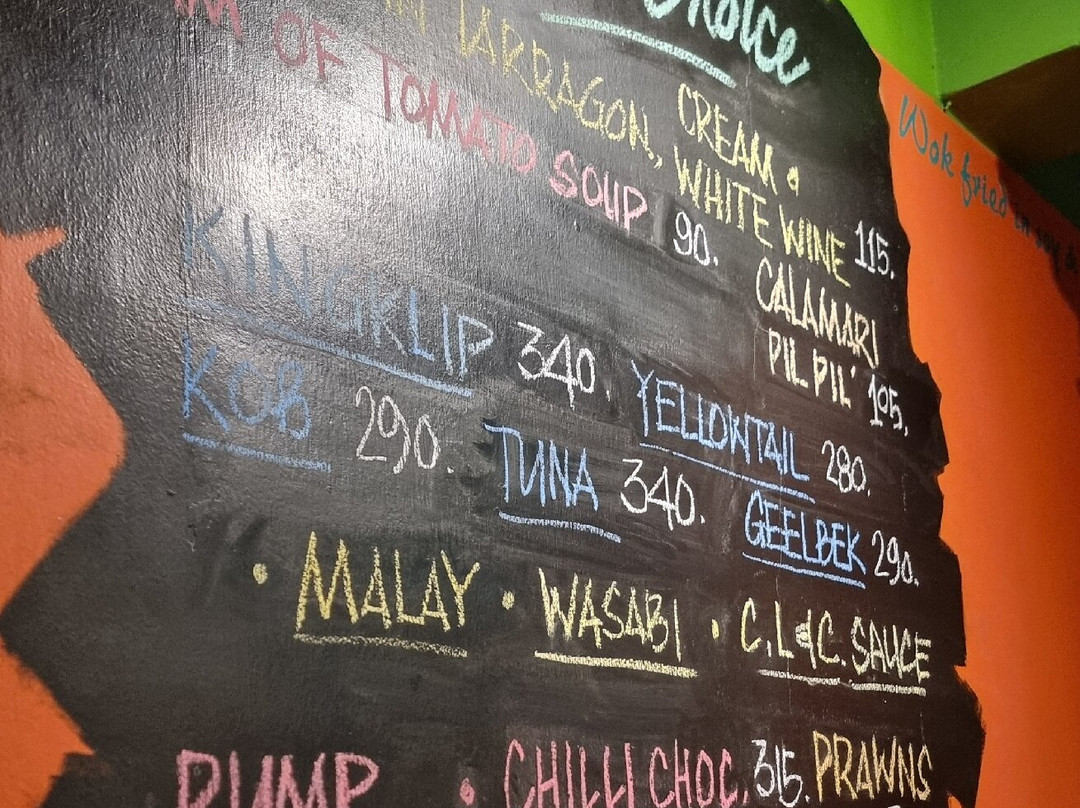 Choice
IN TARRAGON, CREAM &
WHITE WINE 115.
OF TOMATO SOUP 90.
CALAMARI
PIL PIL' 195.
KINGKLIP 340.
YELLOWTAIL 280.
KOB 290.
TUNA 340.
GEELBEK 290.
• MALAY • WASABI • C.L&C. SAUCE
RUMP • CHILLI CHOC. 315. PRAWNS
Wok fried in soy &